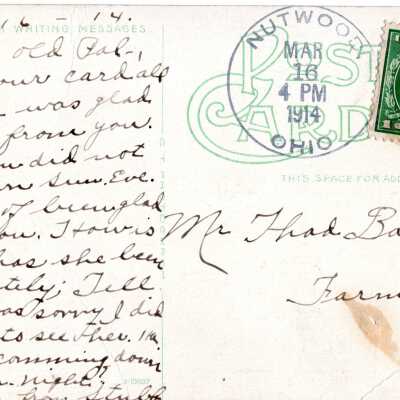 16 - 14.
WRITING MESSAGES
old Pal-,
your card all
was glad
from you.
did not
Sun. Eve.
of been glad
you. How is
has she been
lately; Tell
was sorry I did
to see her.
comming down
night?
from Stubb
NUTWOOD
MAR
16
4 PM
1914
OHIO
POST
CARD
THIS SPACE FOR ADD
Mr Thad Ba
Farm